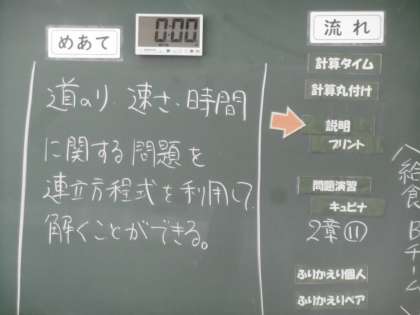 めあて
0:00
道のり、速さ、時間
に関する問題を
連立方程式を利用して
解くことができる。
流れ
計算タイム
計算丸付け
説明
プリント
問題演習
キュビナ
2章⑪
ふりかえり個人
ふりかえりペア
給食Bチーム